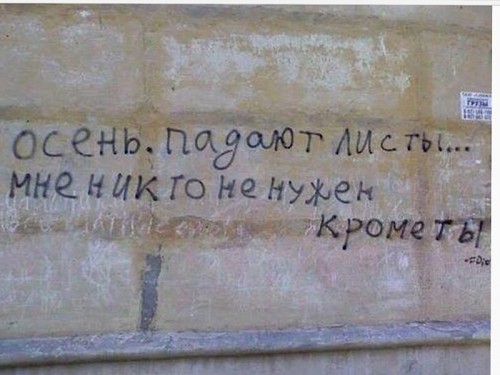 осень. падают листы...
мне никто не нужен
крометы
ГРУЗЫ